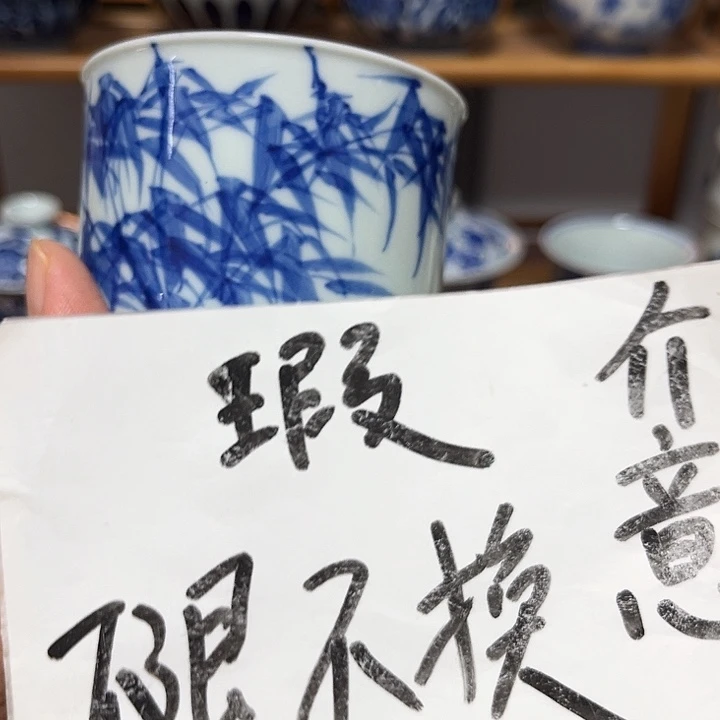 瑕
介意
不退不换